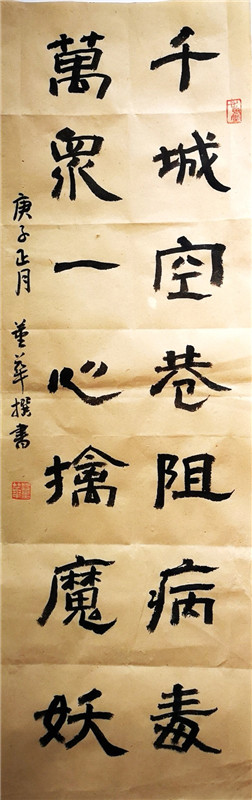 千城空巷阻病毒
萬眾一心擒魔妖
庚子正月 董華撰書